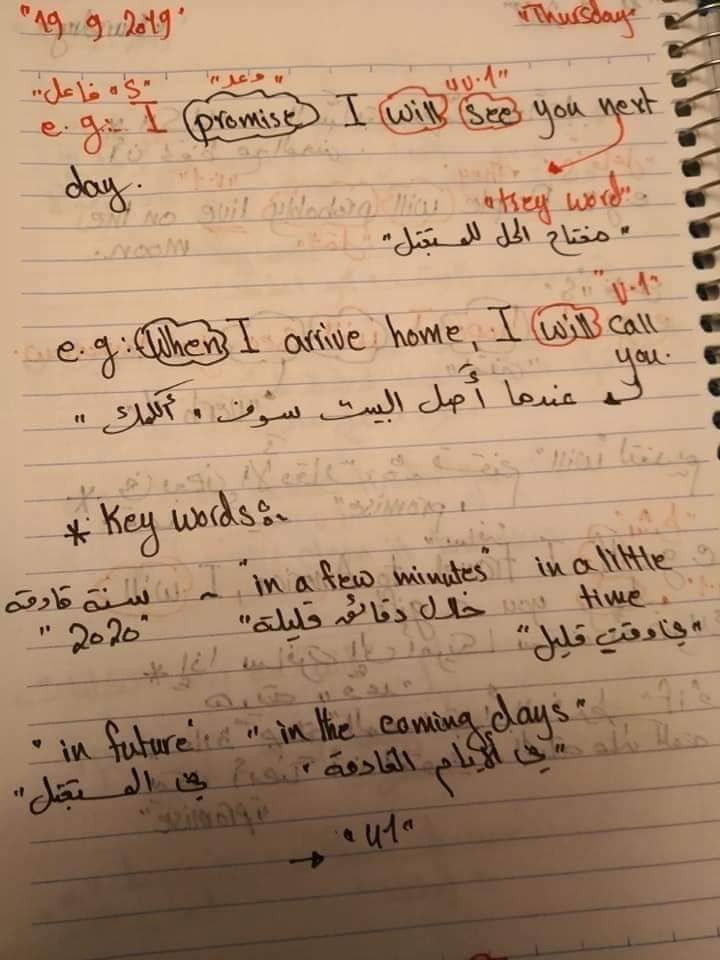 "19 9 2019" "Thursday"
"فاعل "S" "وعد" "v.1"
e.g:- I promise I will see you next
day.
"key word"
"مفتاح الحل للمستقبل"
"v.1"
e.g: When I arrive home, I will call
you.
عندما أصل البيت سوف أكلمك "
* Key words:-
سنة قادمة - "in a few minutes" in a little
"2020" "خلال دقائق قليلة" time.
"في وقت قليل"
"in future" "in the coming days"
"في المستقبل" "في الأيام القادمة"
→ "41"